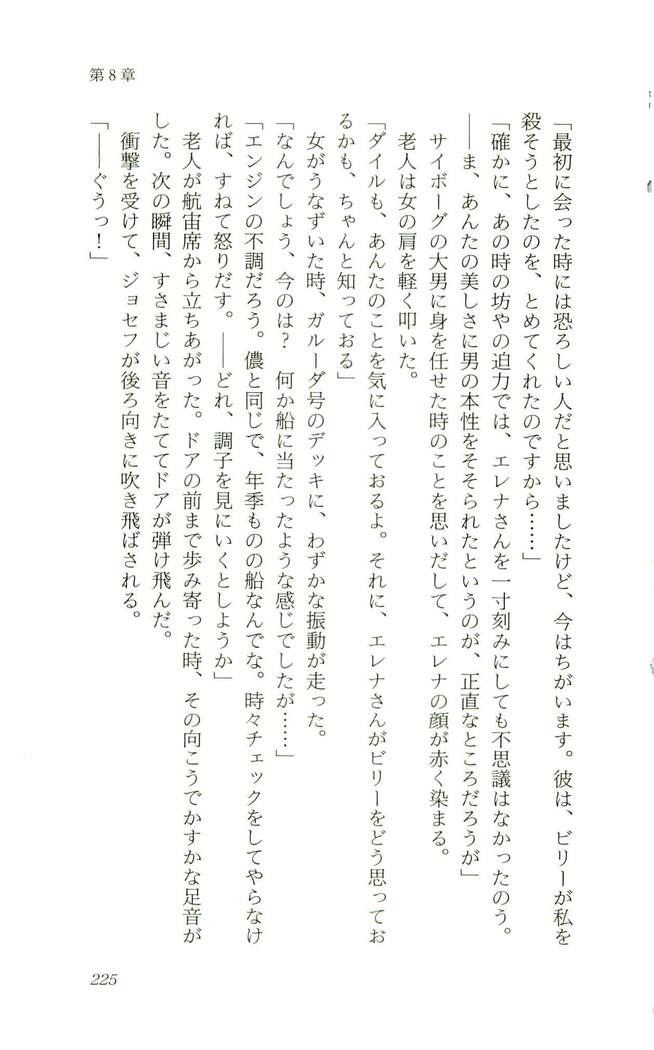 第8章
「最初に会った時には恐ろしい人だと思いましたけど、今はちがいます。彼は、ビリーが私を
殺そうとしたのを、とめてくれたのですから……」
「確かに、あの時の坊やの迫力では、エレナさんを一寸刻みにしても不思議はなかったのう。
――ま、あんたの美しさに男の本性をそそられたというのが、正直なところだろうが」
サイボーグの大男に身を任せた時のことを思いだして、エレナの顔が赤く染まる。
老人は女の肩を軽く叩いた。
「ダイルも、あんたのことを気に入っておるよ。それに、エレナさんがビリーをどう思ってお
るかも、ちゃんと知っておる」
女がうなずいた時、ガルーダ号のデッキに、わずかな振動が走った。
「なんでしょう、今のは？　何か船に当たったような感じでしたが……」
「エンジンの不調だろう。儂と同じで、年季ものの船なんでな。時々チェックをしてやらなけ
れば、すねて怒りだす。――どれ、調子を見にいくとしようか」
老人が航宙席から立ちあがった。ドアの前まで歩み寄った時、その向こうでかすかな足音が
した。次の瞬間、すさまじい音をたててドアが弾け飛んだ。
衝撃を受けて、ジョセフが後ろ向きに吹き飛ばされる。
「――ぐうっ！」
225